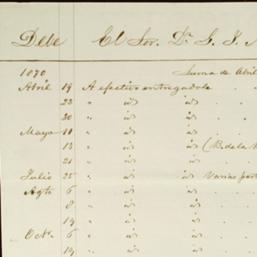 Debe El Sor. Dn. G. J.
1870 Suma de Abril
Abril 19 A efectivo entregadole
" 23 " id id
" 30 " id id
Mayo 11 " id id
" 13 " id id
" 21 " id id
Julio 25 " id id Varias
Agto 6 " id id
" 8 " id id
" 19 " id id
Octe. 6 " id id
" 14 " id id